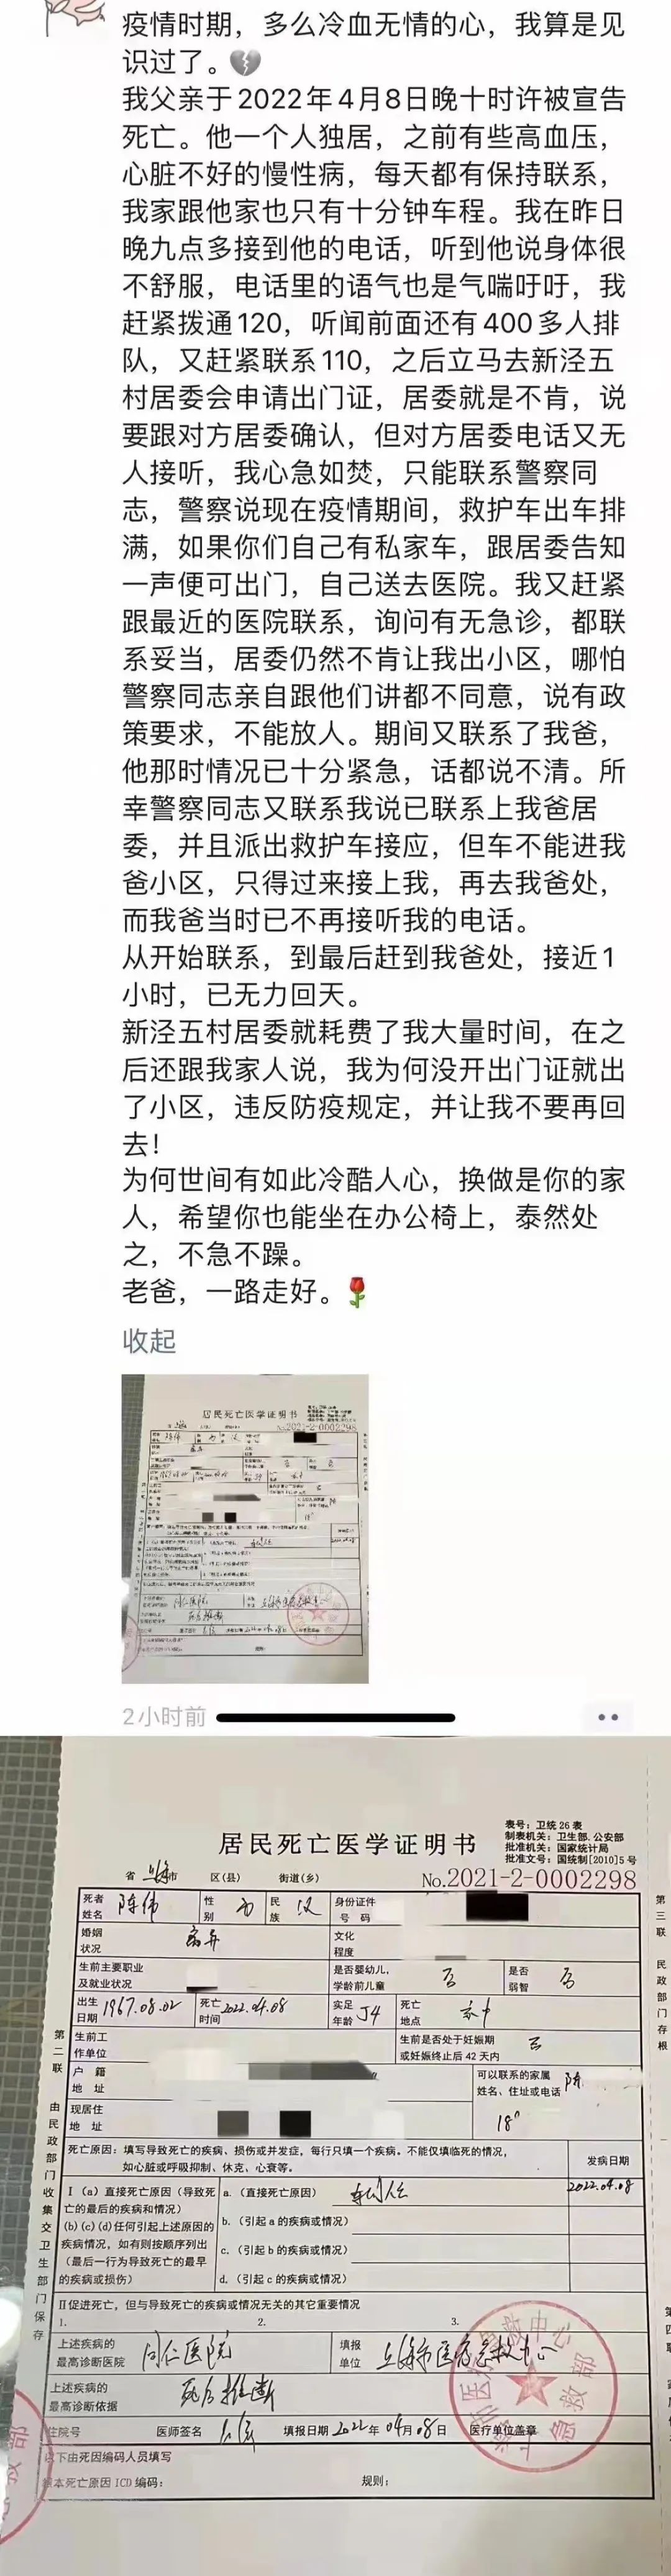 疫情时期，多么冷血无情的心，我算是见
识过了。💔
我父亲于2022年4月8日晚十时许被宣告
死亡。他一个人独居，之前有些高血压，
心脏不好的慢性病，每天都有保持联系，
我家跟他家也只有十分钟车程。我在昨日
晚九点多接到他的电话，听到他说身体很
不舒服，电话里的语气也是气喘吁吁，我
赶紧拨通120，听闻前面还有400多人排
队，又赶紧联系110，之后立马去新泾五
村居委会申请出门证，居委就是不肯，说
要跟对方居委确认，但对方居委电话又无
人接听，我心急如焚，只能联系警察同
志，警察说现在疫情期间，救护车出车排
满，如果你们自己有私家车，跟居委告知
一声便可出门，自己送去医院。我又赶紧
跟最近的医院联系，询问有无急诊，都联
系妥当，居委仍然不肯让我出小区，哪怕
警察同志亲自跟他们讲都不同意，说有政
策要求，不能放人。期间又联系了我爸，
他那时情况已十分紧急，话都说不清。所
幸警察同志又联系我说已联系上我爸居
委，并且派出救护车接应，但车不能进我
爸小区，只得过来接上我，再去我爸处，
而我爸当时已不再接听我的电话。
从开始联系，到最后赶到我爸处，接近1
小时，已无力回天。
新泾五村居委就耗费了我大量时间，在之
后还跟我家人说，我为何没开出门证就出
了小区，违反防疫规定，并让我不要再回
去！
为何世间有如此冷酷人心，换做是你的家
人，希望你也能坐在办公椅上，泰然处
之，不急不躁。
老爸，一路走好。🌹
收起
居民死亡医学证明书
No.2021-2-0002298
2小时前
表号：卫统26表
制表机关：卫生部.公安部
批准机关：国家统计局
批准文号：国统制[2010]5号
居民死亡医学证明书
省 上海市 区(县) 街道(乡)
No.2021-2-0002298
死者姓名 陈伟 性别 男 民族 汉 身份证件号码
婚姻状况 离异 文化程度
生前主要职业及就业状况 是否婴幼儿，学龄前儿童 否 是否弱智 否
出生日期 1967.08.02 死亡时间 2022.04.08 实足年龄 54 死亡地点 家中
生前工作单位 生前是否处于妊娠期或妊娠终止后42天内 否
户籍地址 可以联系的家属姓名、住址或电话 陈
现居住地址 18
死亡原因：填写导致死亡的疾病、损伤或并发症，每行只填一个疾病。不能仅填临死的情况，
如心脏或呼吸抑制、休克、心衰等。
发病日期
I (a) 直接死亡原因（导致死亡的最后的疾病和情况） a.（直接死亡原因） 2022.04.08
(b)(c)(d)任何引起上述原因的疾病情况，如有则按顺序列出（最后一行为导致死亡的最早的疾病或损伤）
b.（引起a的疾病或情况）
c.（引起b的疾病或情况）
d.（引起c的疾病或情况）
II促进死亡，但与导致死亡的疾病或情况无关的其它重要情况
1. 2. 3.
上述疾病的最高诊断医院 同仁医院 填报单位 上海市医疗急救中心
上述疾病的最高诊断依据 死后推断
住院号 医师签名 填报日期 2022年04月08日 医疗单位盖章
以下由死因编码人员填写
根本死亡原因ICD编码： 规则：
第二联 由民政部门收集交卫生部门保存
第三联 民政部门存根